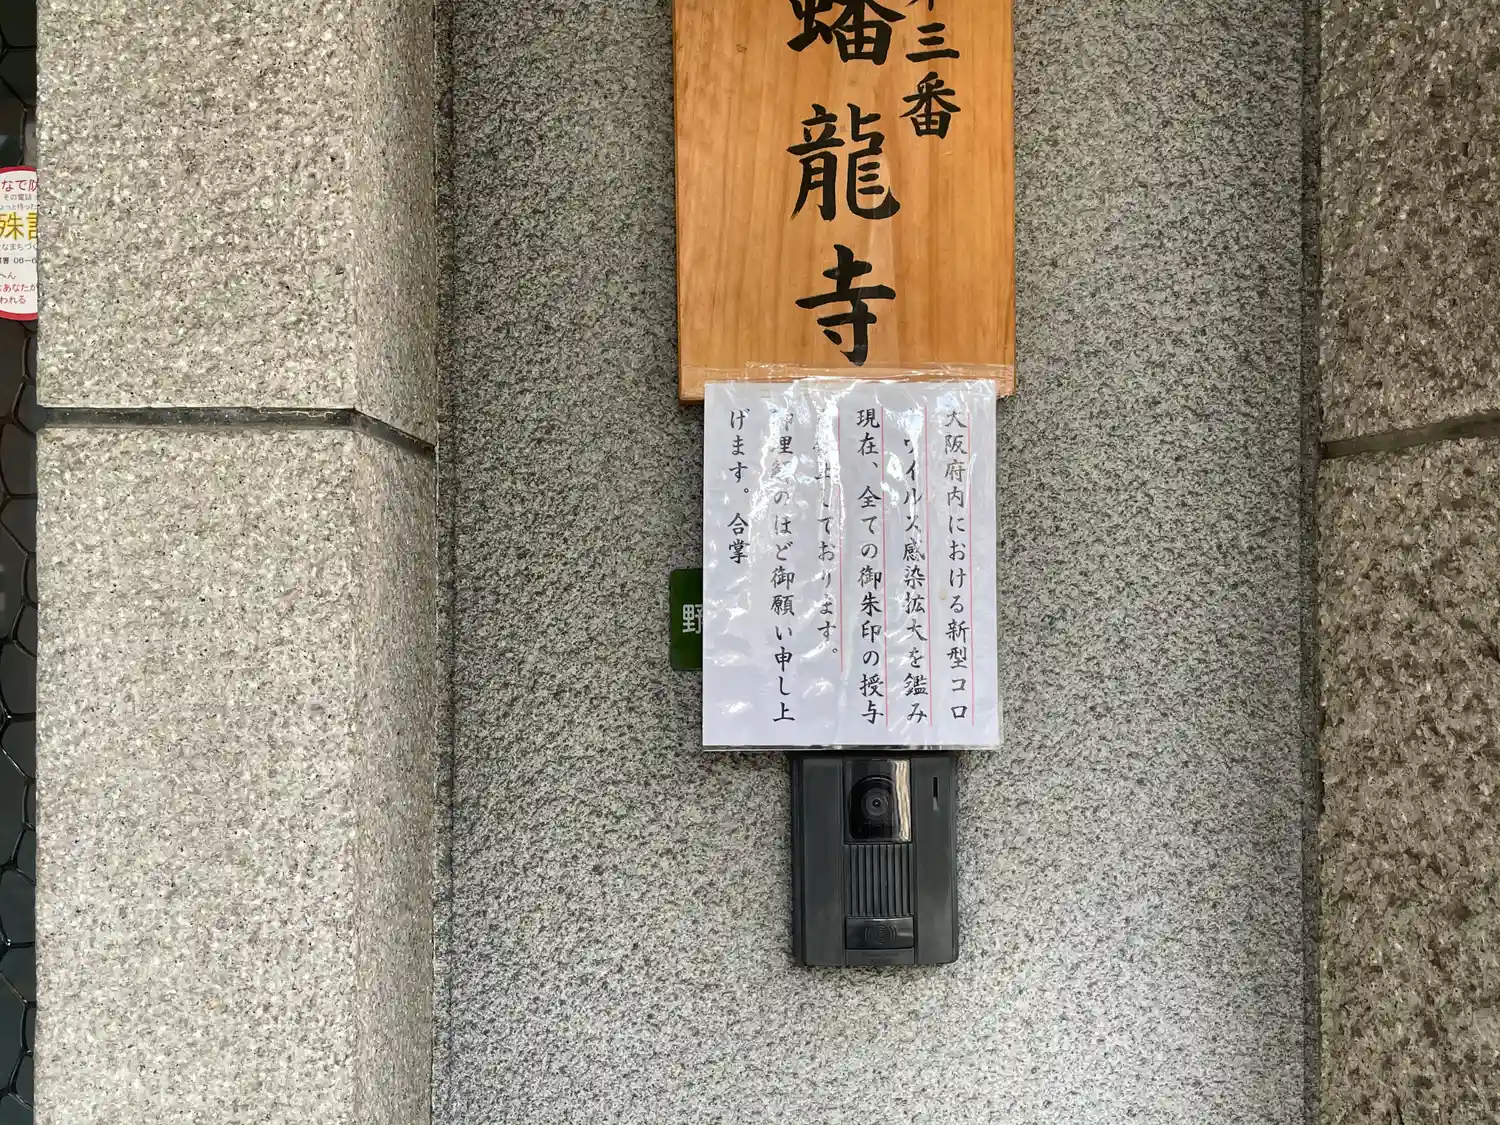 三番
蟠龍寺
大阪府内における新型コロ
ウイルス感染拡大を鑑み
現在、全ての御朱印の授与
しております。
御理解のほど御願い申し上
げます。合掌
野
なで防
その電話
殊詐
なまちづく
06-6
へん
あなたが
われる